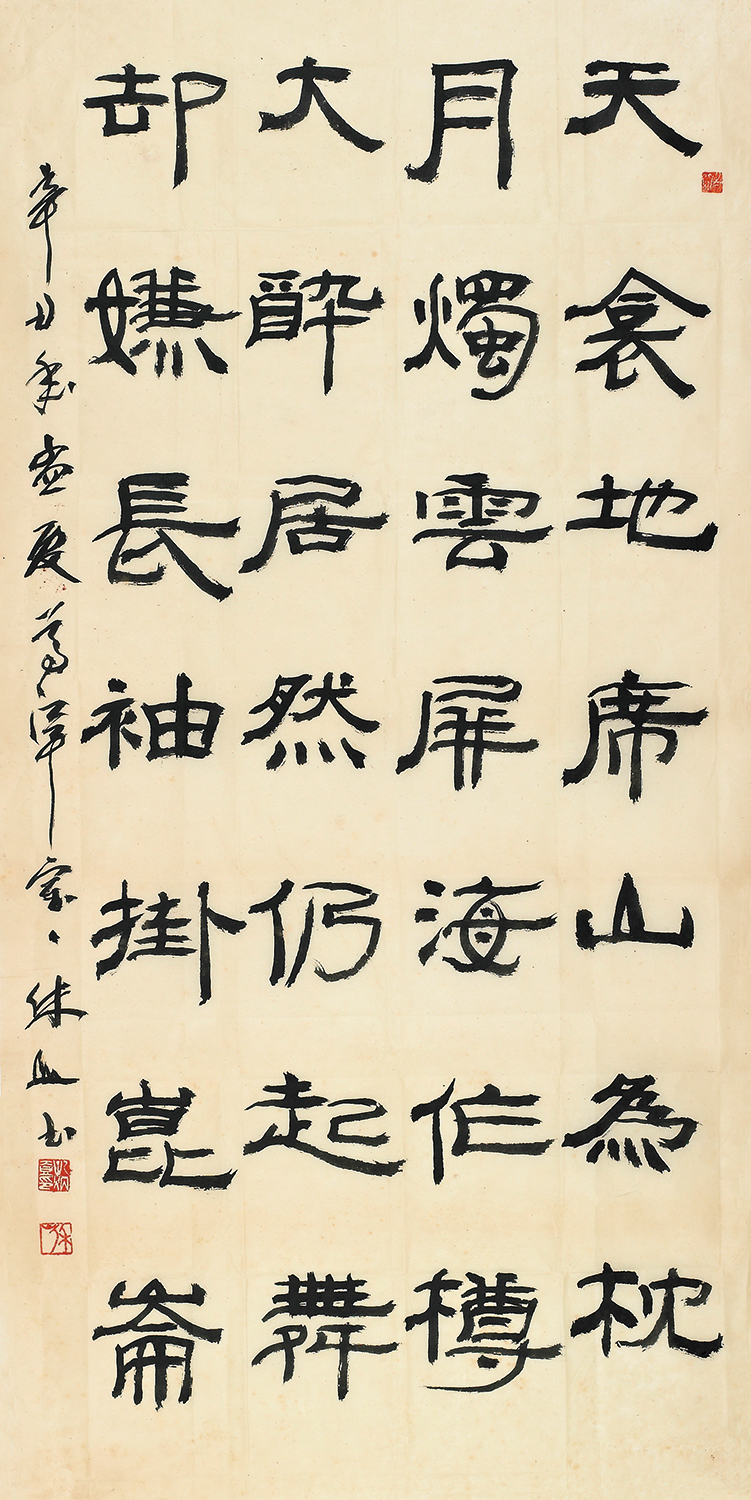 天衾地席山為枕
月燭雲屏海作樽
大醉居然仍起舞
却嫌長袖掛崑崙
辛丑孟夏